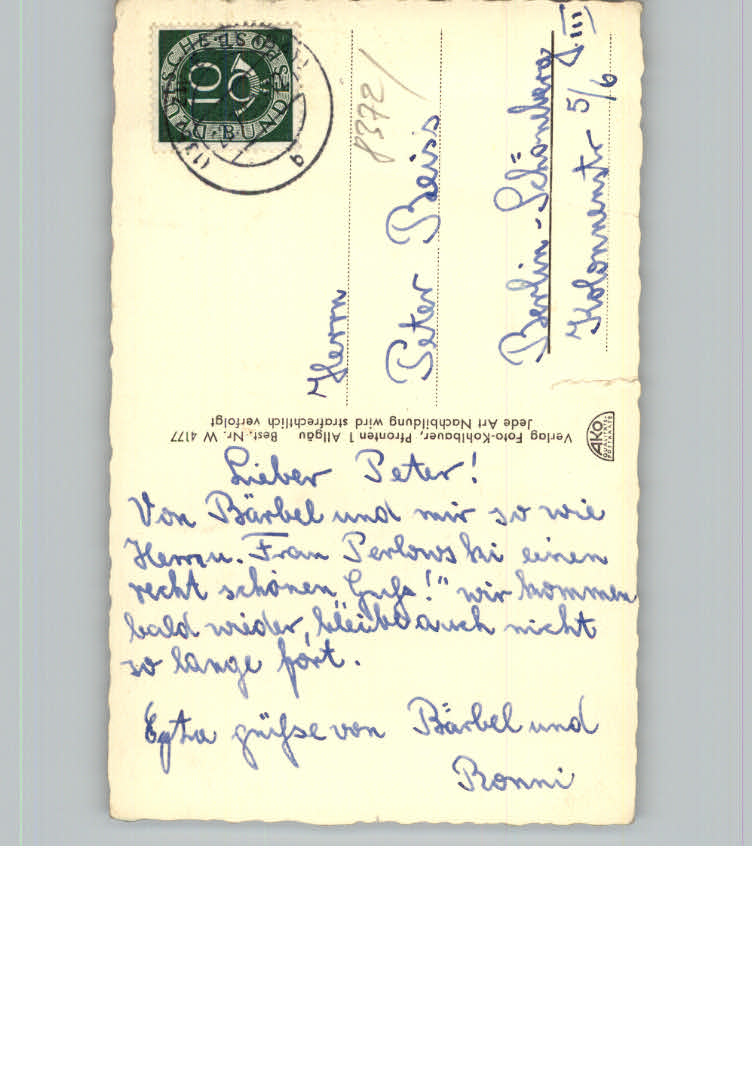 Lieber Peter!
Von Bärbel und mir so wie
Herrn u. Frau Perlowski einen
recht schönen „Gruß!" wir kommen
bald wieder, bleibe auch nicht
so lange fort.
Extra grüße von Bärbel und
Ronni
Herrn
Peter Beiss
Berlin-Schöneberg
Kolonnenstr 5/6
III
8372/
Verlag Foto-Kohlbauer, Pfronten 1 Allgäu Best.-Nr. W 4177
Jede Art Nachbildung wird strafrechtlich verfolgt
AKO
QUALITÄTS-
POSTKARTE
DEUTSCHE BUNDESPOST
10
(13